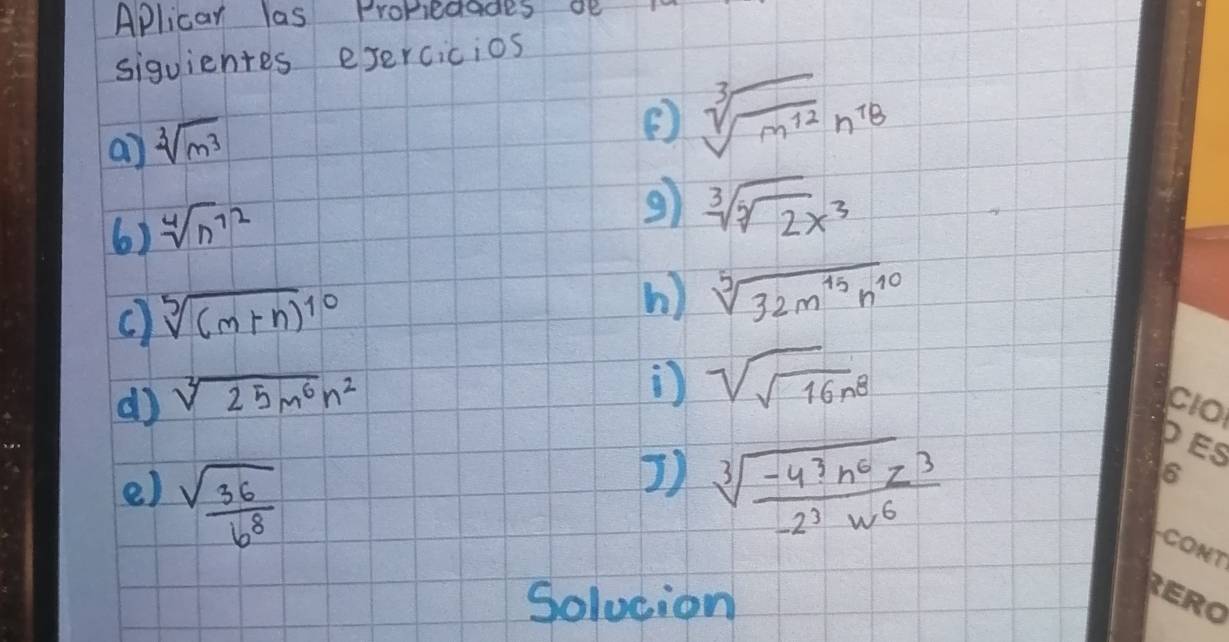 Aplicar las Propiedades de
siguientes ejercicios
a) ∛m³
b) ∜n¹²
c) ⁵√(m+n)¹⁰
d) ∛25m⁶n²
e) √36/b⁸
f) ∛√m¹² n¹⁸
g) ∛⁵√2x³
h) ⁵√32m¹⁵n¹⁰
i) √√16n⁸
J) ∛-4³n⁶z³/-2³w⁶
Solucion
CIO
ES
6
CONT
RERO